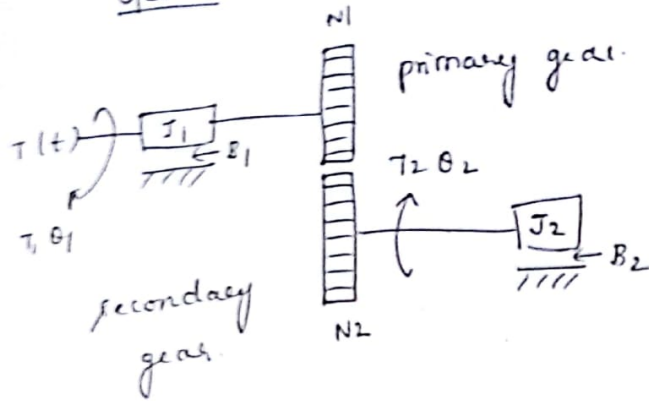 N1
primary gear.
T(t)
J1
B1
T2 θ2
T, θ1
J2
B2
secondary
gear.
N2